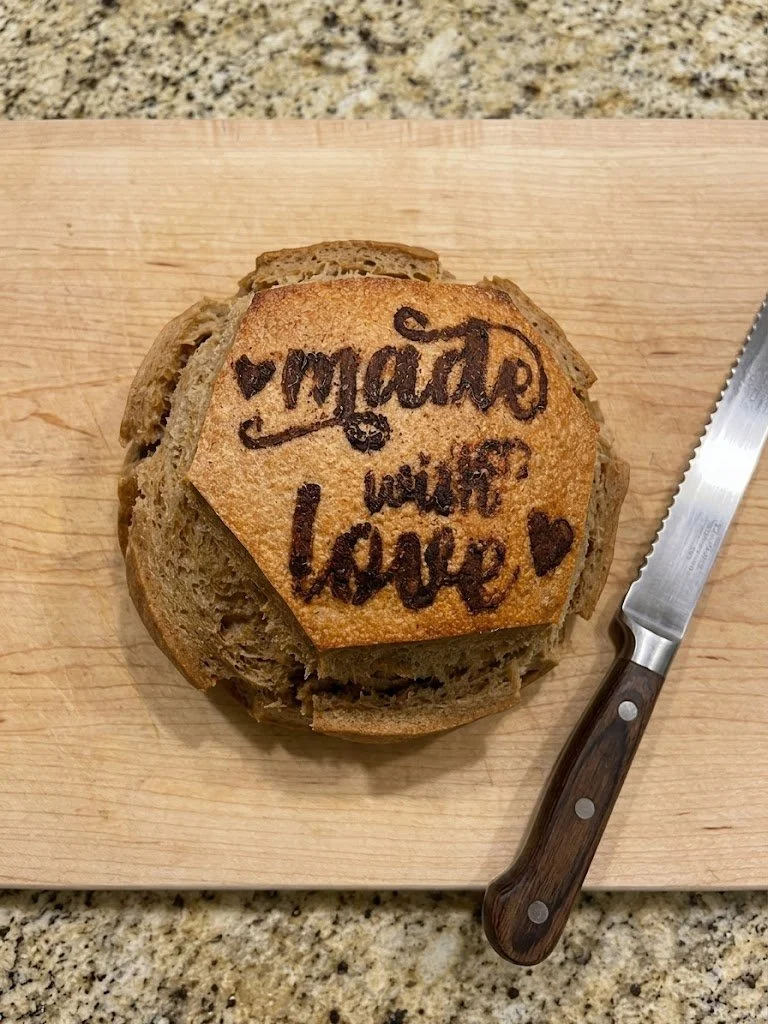 made
with
love